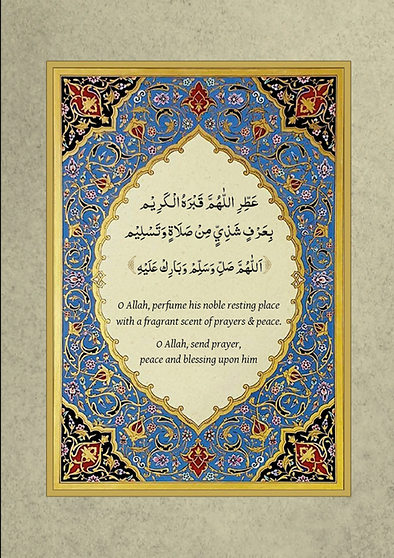 عَطِّرِ اللّٰهُمَّ قَبْرَهُ الْكَرِيْم
بِعَرْفٍ شَذِيٍّ مِنْ صَلَاةٍ وَتَسْلِيْم
﴿اَللّٰهُمَّ صَلِّ وَسَلِّمْ وَبَارِكْ عَلَيْهِ﴾
O Allah, perfume his noble resting place
with a fragrant scent of prayers & peace.
O Allah, send prayer,
peace and blessing upon him